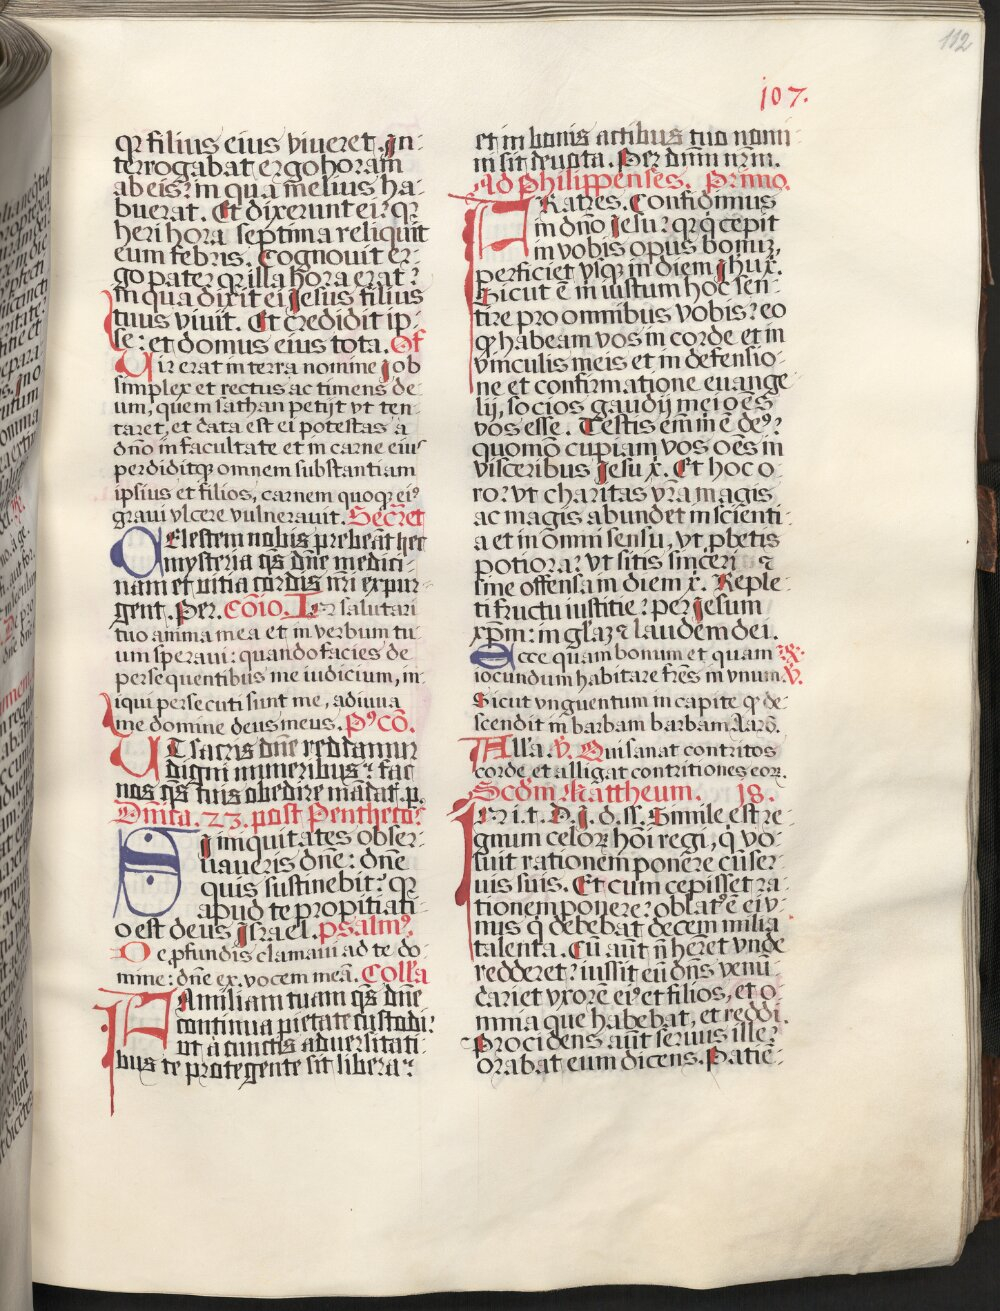 112
107.
qꝛ filius eius viueret. In-
terrogabat ergo horam
ab eis: in qua melius ha-
buerat. Et dixerunt ei: qꝛ
heri hora septima reliquit
eum febris. Cognouit er-
go pater qꝛ illa hora erat:
in qua dixit ei Jesus filius
tuus viuit. Et credidit ip-
se: et domus eius tota. Of
Uir erat in terra nomine job
simplex et rectus ac timens de-
um, quem sathan petijt vt ten-
taret, et data est ei potestas a
dn̄o in facultate et in carne eius
perdiditqꝫ omnem substantiam
ipsius et filios, carnem quoqꝫ eiꝰ
graui vlcere vulnerauit. Secret
CElestem nobis prebeāt hec
mysteria qs̄ dn̄e medici-
nam et vitia cordis nr̄i expur-
gent. Per. Cōio. In salutari
tuo anima mea et in verbum tu-
um speraui: quando facies de
persequentibus me iudicium, in-
iqui persecuti sunt me, adiuua
me domine deus meus. Pꝰcō.
UT sacris dn̄e reddamur
digni muneribus: fac
nos qs̄ tuis obedire mādat̄. p.
Dn̄ica. 23. post Penthecoꝰ
SI iniquitates obser-
uaueris dn̄e: dn̄e
quis sustinebit: qꝛ
apud te propitiati-
o est deus Israel. psalmꝰ.
De ꝓfundis clamaui ad te do-
mine: dn̄e ex. vocem meā. Coll'a
FAmiliam tuam qs̄ dn̄e
continua pietate custodi:
ut a cunctis aduersitati-
bus te protegente sit libera:
et in bonis actibus tuo nomi-
ni sit deuota. Per dn̄m nr̄m.
Ad Philippenses. Primo.
FRatres. Confidimus
in dn̄o Jesu: qꝛ q̄ cepit
in vobis opus bonuꝫ,
perficiet vsqꝫ in diem Jhu x̄.
Sicut ē m iustum hoc sen-
tire pro omnibus vobis: eo
qꝫ habeam vos in corde et in
vinculis meis et in defensio-
ne et confirmatione euange-
lij, socios gaudij mei oēs
vos esse. Testis enim m̄ ē deꝰ:
quomō cupiam vos oēs in
visceribus Jesu x̄. Et hoc o-
ro: vt charitas vr̄a magis
ac magis abundet in scienti-
a et in omni sensu, vt ꝓbetis
potiora: vt sitis sinceri ⁊
sine offensa in diem x̄. Reple-
ti fructu iustitie: per Jesum
xp̄m: in gl'aꝫ ⁊ laudem dei.
Ecce quam bonum et quam R.
iocundum habitare fr̄es in vnum. V.
Sicut vnguentum in capite qꝫ de-
scendit in barbam barbam Aarō.
All'a. V. Qui sanat contritos
corde, et alligat contritiones eoꝝ.
Scd̄m Mattheum. 18.
IN i. t. D. J. d. ss. Simile est re-
gnum celoꝝ hōi regi, q̄ vo-
luit rationem ponere cū ser-
uis suis. Et cum cepisset ra-
tionem ponere: oblatꝰ ē ei v-
nus q̄ debebat decem milia
talenta. Cū aūt n̄ hr̄et vnde
redderet: iussit eū dn̄s venū-
dari et vxorē eiꝰ et filios, et o-
mnia que habebat, et reddi.
Procidens aūt seruus ille:
orabat eum dicens. Patiē-